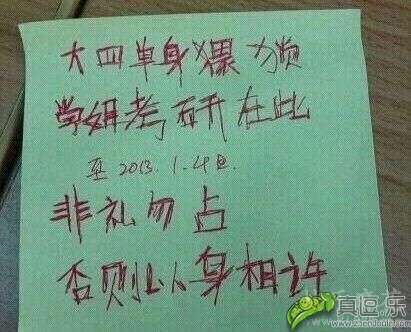 大四单身猥琐
学姐考研在此
至2013.1.4日.
非礼勿占
否则以身相许
真逗乐
www.zhendoule.com